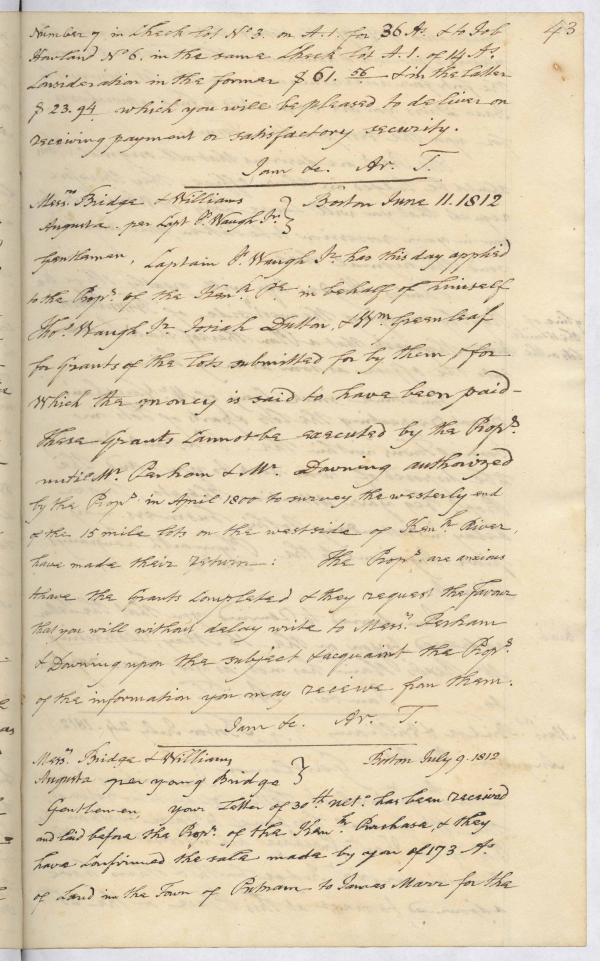 43
Number 7 in Check Lot No. 3. on A. 1. for 36 As. & to Job
Howland No 6. in the same Check Lot A. 1. of 14 As.
Consideration in the former $ 61. 56 & in the latter
$ 23.94 which you will be pleased to deliver on
receiving payment or satisfactory security.
I am &c. Ar. T.
Messrs. Bridge & Williams } Boston June 11. 1812
Augusta. per Capt P. Waugh Jr. }
Gentlemen, Captain P. Waugh Jr. has this day applied
to the Props. of the Kenk. Pe. in behalf of himself
Thos. Waugh Jr. Josiah Dutton, & Wm. Greenleaf
for Grants of the Lots submitted for by them & for
which the money is said to have been paid -
These Grants cannot be executed by the Props.
until Mr. Perham & Mr. Downing authorized
by the Props. in April 1800 to survey the westerly end
of the 15 mile lots on the west side of Kenk. River,
have made their return: The Props. are anxious
to have the Grants completed & they request the favour
that you will without delay write to Messrs. Perham
& Downing upon the subject & acquaint the Props.
of the information you may receive from them.
I am &c. Ar. T.
Messrs. Bridge & Williams } Boston July 9. 1812
Augusta per young Bridge }
Gentlemen, your Letter of 30th ult. has been received
and laid before the Props. of the Kenk. Purchase, & they
have confirmed the sale made by you of 173 As.
of Land in the Town of Putnam to James Marr for the